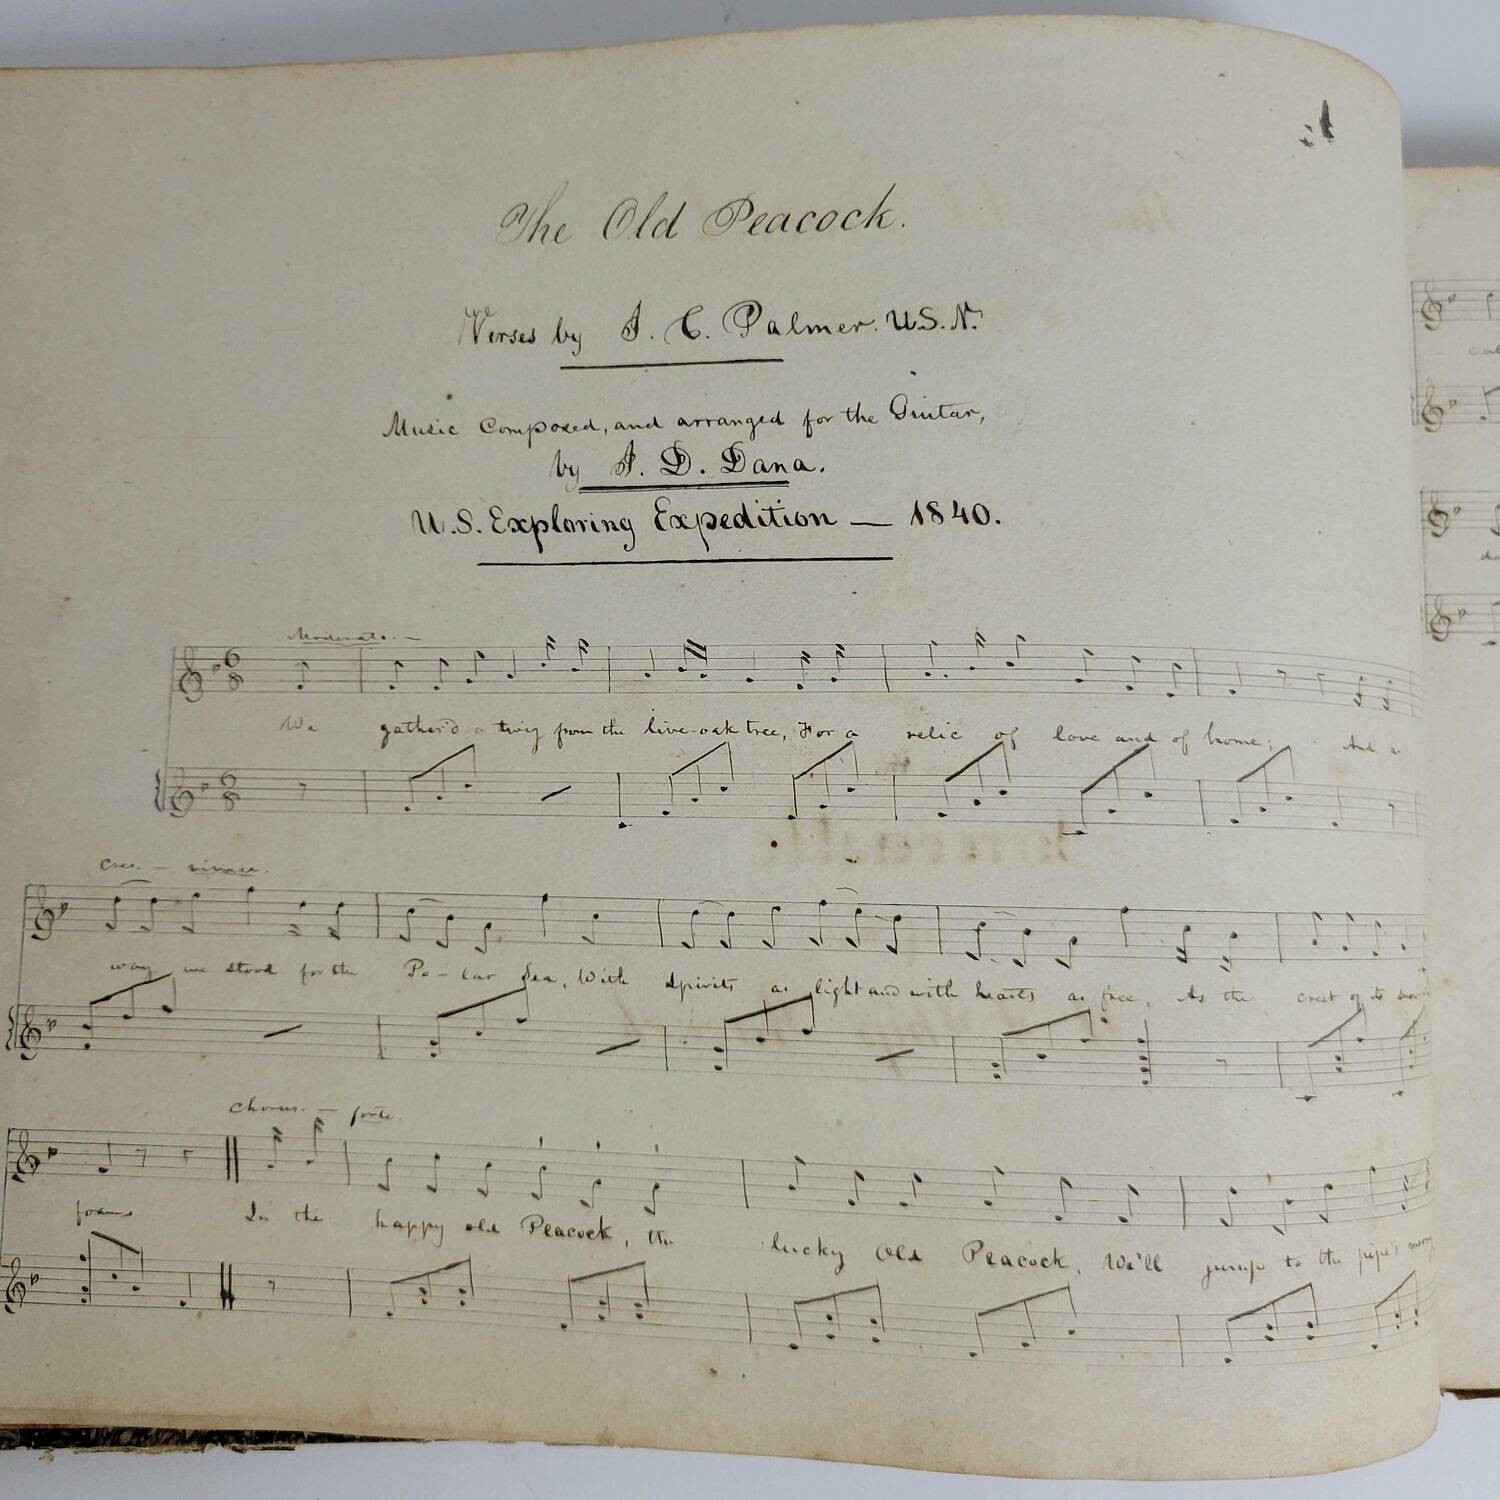 The Old Peacock.
Verses by J. C. Palmer. U.S.N.
Music Composed, and arranged for the Guitar,
by J. D. Dana.
U.S. Exploring Expedition — 1840.
Moderato. —
6 8
We gather'd a twig from the live-oak tree, For a relic of love and of home; And a
6 8
Cres. — vivace.
way we stood for the Po-lar Sea, With spirits as light and with hearts as free, As the crest of its snow
Chorus. — forte.
foam In the happy old Peacock, the lucky Old Peacock, We'll jump to the pipe's merry